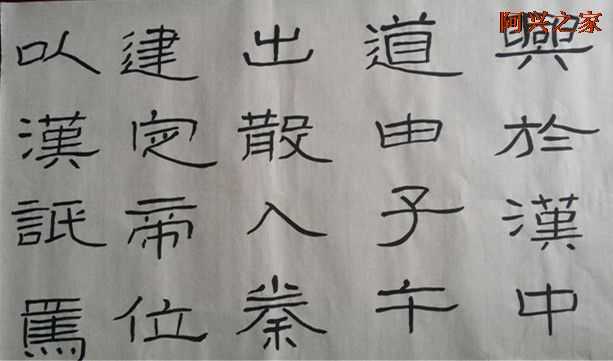 阿兴之家
興於漢中
道由子午
出散入秦
建定帝位
以漢詆焉